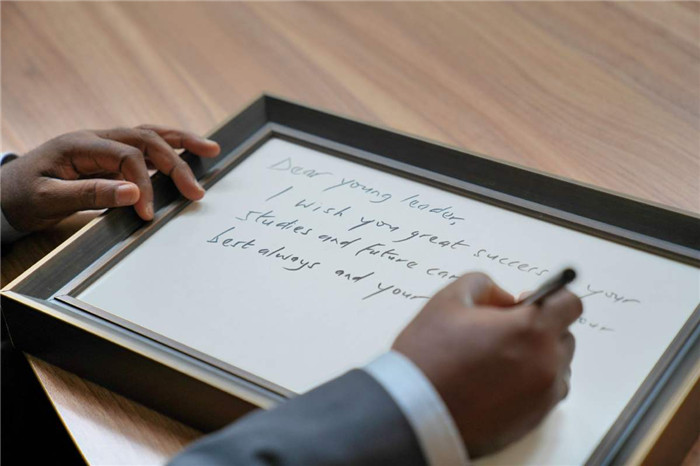 Dear young leader,
I wish you great success your
studies and future our
best always and your